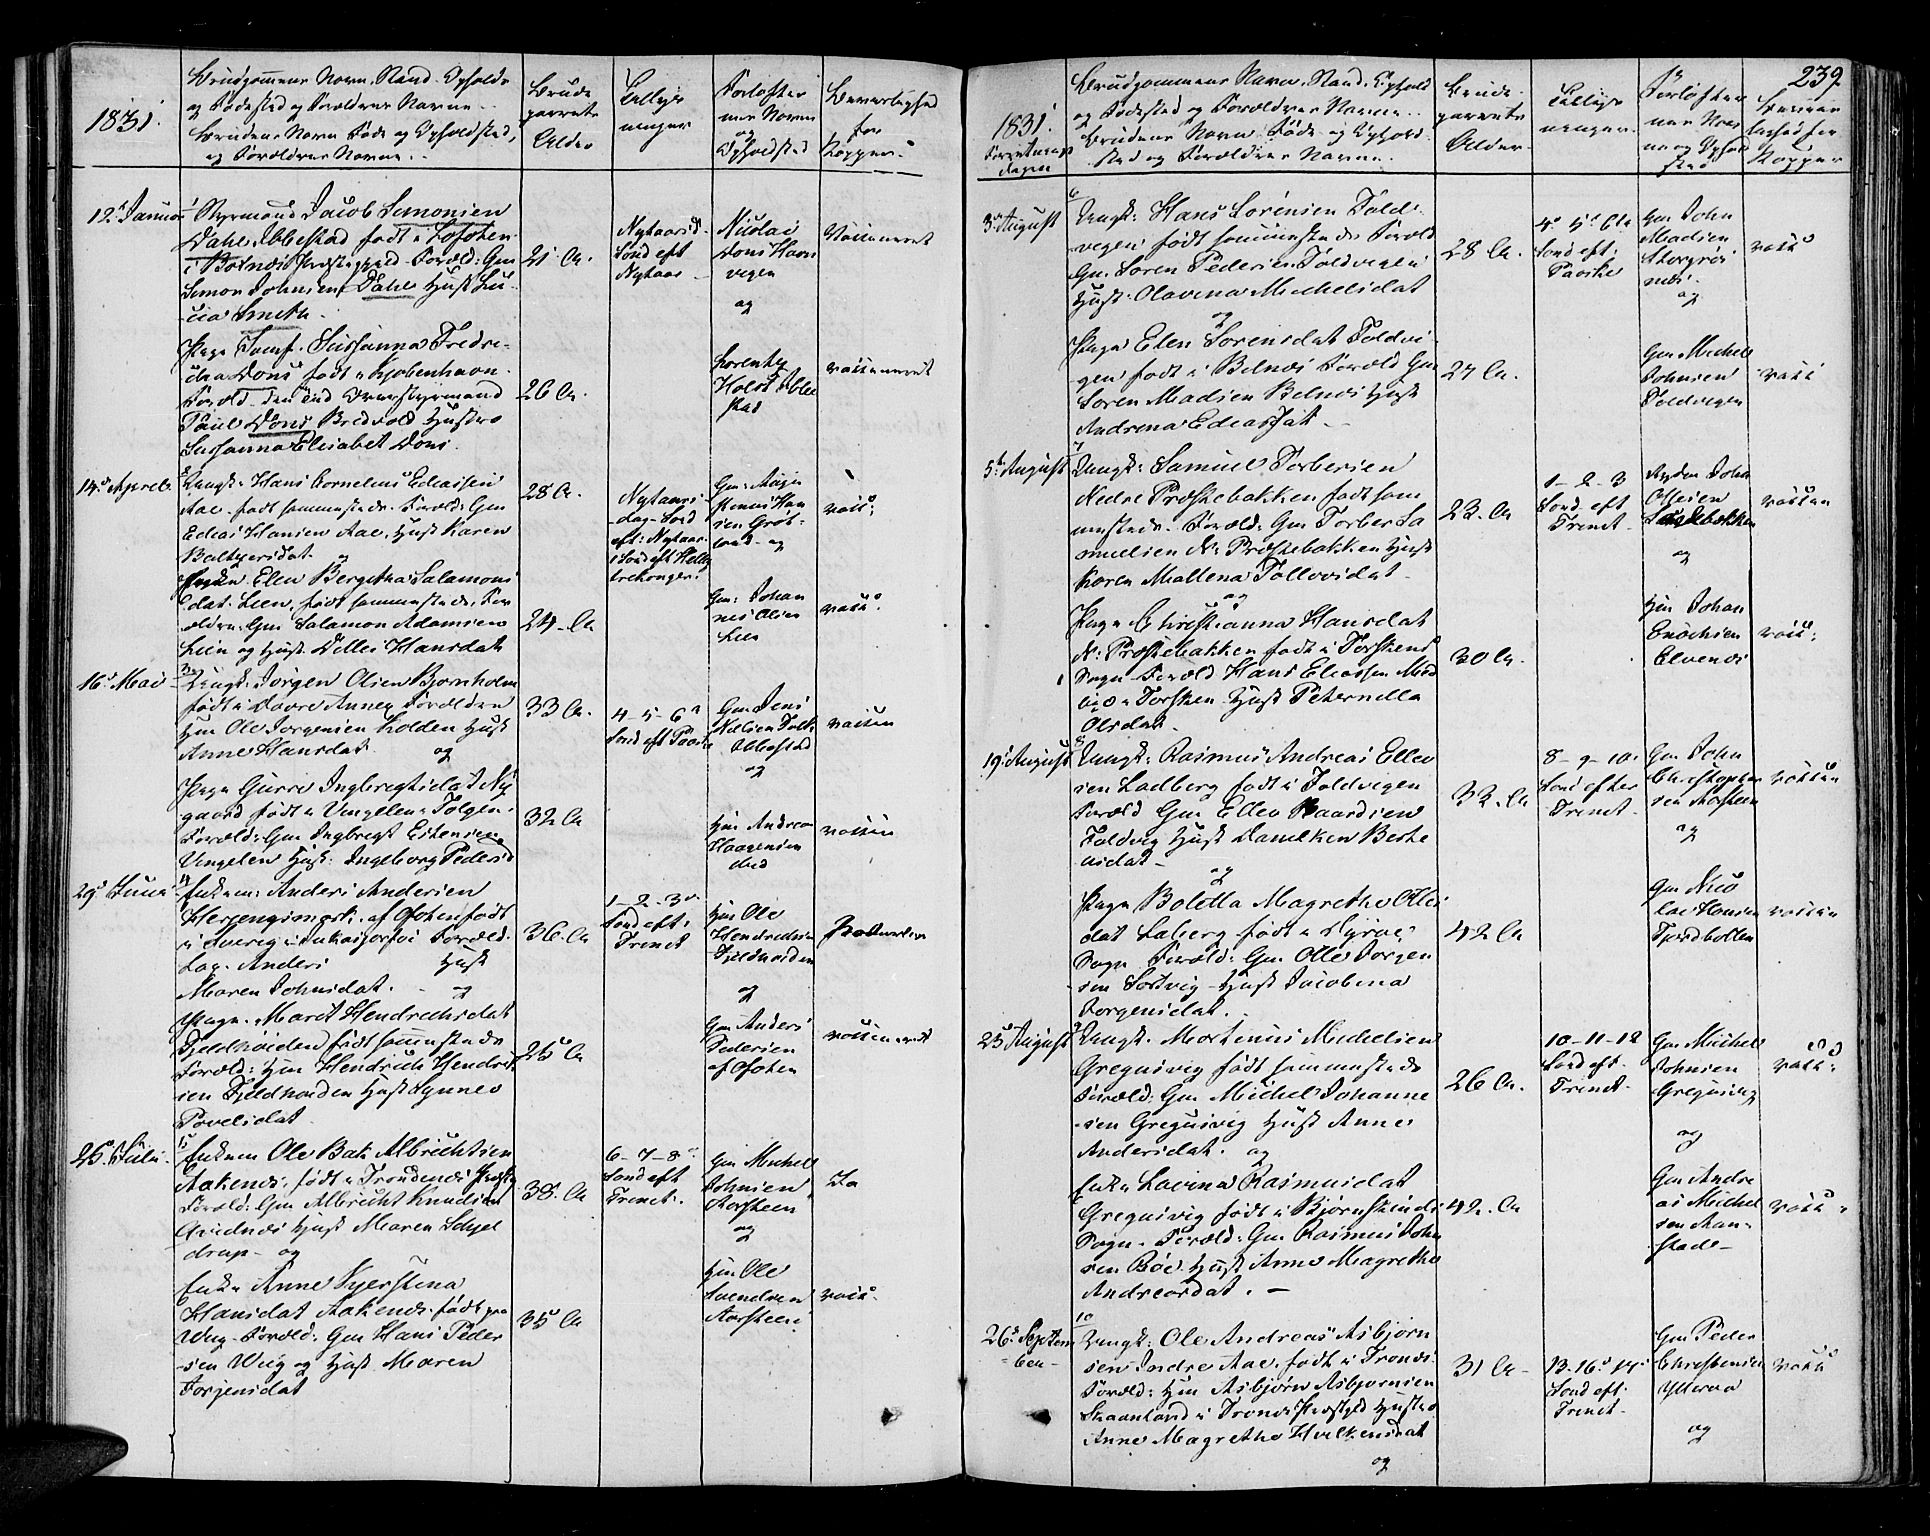 1831.
Brudgommens Navn, Stand, Opholds
og Fødested og Forældres Navne..
Brudens Navn Føde og Opholdsted,
og Forældres Navne..
Brude
parrets
Alder
Tillys-
ninger
Forlofter
nes Navn
og
Opholdsted
Bevarlighed
for
Kopper.
12. Januar
Styrmand Jacob Simonsen
Dahl, Ibbestad født i Lofoten
i Borgnæs Præstegjeld - Foræld: Gm
Simon Johnsen Dahl Hust Lu-
cia Smith.
21 Aa.
Nytaarsd.
Sond eft
Nytaar
Nicolai
Dons Havn
vigen
og
Vaccineret
Pige Jomf. Susanna Fredri-
cha Dons født i Kjøbenhavn.
Foræld -
Poul Dons Hustro
Susanna Elisabet Dons.
26 Aa.
Lorentz
Holst Ibbe
stad
vaccineret
14. Aprel
2
Ungk. Hans Cornelius Eliassen
Aae. født sammestæds. Foræld: Gm
Elias Hansen Aae, Hust Karen
Baltzersdat
og
28 Aa.
Nytaars-
dag - Sond
eft: Nytaar
Sond eft Hellig
trekonger:
Gm:
Han
sen Grøt-
og
vacc:
Pigen Ellen Bergitha Salamons
dat. Lien, født sammestæds, For
ældre: Gm Salamon Adamsen
Lien og Hust. Hansdat
24 - Aa
Gm: Johan
nes Olsen
Lien
vacc:
16. Mai
3
Ungk. Jørgen Olsen Bjornholm
født i Annex Forældre
Hm Ole Jørgensen Kolden Hust
Anne Hansdat.
og
33 Aa.
4 - 5 - 6
Sond eft Paaske
Gm Jens
Nielsen
Ibbestad
og
vaccin
Pige Gurri Ingbregtsdat Ny
gaard født i Vingelen Tolgen.
Foræld: Gm Ingbregt Estensen
Vingelen Hust: Ingeborg Pedersd
32 Aa
Hm Andrea
Haagensen
vaccin
29. Juni
4
Enkem: Anders Andersen
Hergangsmark. af Ofoten født
i Sverig i Foræld.
Lap. Anders Hust
Maren Johnsdat. - og
36. Aa
1 - 2 - 3
Sond eft:
Trinit
Hm Ole
Hendrichsen
Fjeldhorden
og
Pige. Marit Hendrichsdat
Fjeldhorden født sammestæds
Foræld: Hm Hendrich Hendrich
sen Fjeldhorden Hust Synnev
Povelsdat.
25 Aa
Gm Anders
Pedersen
af Ofoten
vaccineret
26. Juli.
5
Enkem Ole Bak Albrichtsen
Aakenes. født i Trondenes Præst
Foræld: Gm Albricht Knudsen
Hust Maren Schjel
drup - og
38. Aa
6 - 7 - 8
Sond eft
Trinit.
Gm Michel
Johnsen
Aarsteen
og
Ja
Enke Anne Kjerstena
Hansdat Aakenes. født paa
Wiig - Foræld: Gm Hans Peder
sen Wiig og Hust. Maren
Jorgensdat
35 Aa
Hm Ole
Svendsen
Aarsteen
vacc.
239
1831.
Forretnings
dagen
Brudgommens Navn, Stand, Ophold
og Fødested og Forældres Navne..
Brudens Navn. Føde- og Ophold-
sted og Forældres Navne..
Brude-
parrets
Alder
Tillys-
ninger.
Forlofter
nes Nav
ne og Ophold
sted
Bevar
lighed for
Kopper
3. August
6
Ungk: Hans Sörensen Fold-
vigen født sammestæds Foræld
Gm. Sören Pedersen Foldvigen
Hust. Olavina Michelsdat
og
28 Aa.
4. 5. 6te
Sond eft.
Paaske
Gm John
Madsen
Storgrøv
næs.
og
vacc
Pige Elen Sorensdat Foldvi-
gen født i Belnes Foræld Gm
Soren Madsen Belnes Hust
Andrena Eliasdat. -
27 Aa.
Gm Michel
Johnsen
Foldvigen
vacc
5te August
7
Ungk: Samuel Torbersen
Nedre Præstebakken født sam
mestæds - Foræld: Gm Torber Sa
muelsen N: Præstebakken Hust
Karen Mallena Tollevsdat -
og
23. Aa
1 - 2 - 3
Sond. eft
Trinit.
Johan
Ollsen
Sandebakken
og
vaccin
Pige Christianna Hansdat
N: Præstebakken født i Torskens
Sogn - Foræld Hans Eliassen Med
bye Torsken - Hust Peternilla
Olsdat -
30 Aa.
Hm Johan
Enochsen
Elvenes
vacc:
19. August
8
Ungk: Rasmus Andreas Ellev
sen Ladberg født i Foldvigen
Foræld Gm Ellev Paardsen
Foldvig Hust Danilken Berthe
usdat -
og
33. Aa
8 - 9 - 10.
Sond efter
Trinit.
Gm John
Christopher
sen Aarsteen
og
vaccin
Pige Boletta Magretha Olles
dat Laberg født i Dyrøe
Sogn Foræld: Gm Olle Jorgen
sen Sørvig - Hust Jacobina
Jorgensdat.
42 Aa
Gm Nico
lai Hansen
Fjordbotten
vaccin
25 August
9
Ungk. Mortinus Michelsen
Gregusvig født sammestæds
Foræld: Gm Michel Johanne
sen Gregusvig Hust Anne
Andersdat. og
26 Aa.
10 - 11 - 12
Sond eft.
Trinit -
Gm Michel
Johnsen
Gregusvig
og
vacc:
Enke Lavina Rasmusdat
Gregusvig født i Bjørnskinds
Sogn - Foræld: Gm Rasmus John
sen Bøe Hust Anne Magretha
Andreasdat. -
42. Aa
Gm Andre
as Michel
sen Aan-
stade -
vacc
26. Septem
ber -
10
Ungk: Ole Andreas Asbjørn
sen Indre Aae. født i Trondes.
Foræld: Hm Asbjørn Asbjornsen
Skaanland i Trondes Præstgjeld Hustro
Anne Magretha Hvilkensdat
og
31 Aa -
13 - 16. 17.
Sond eft.
Trinit -
Gm Peder
Christensen
Ytteraa
og
vacc